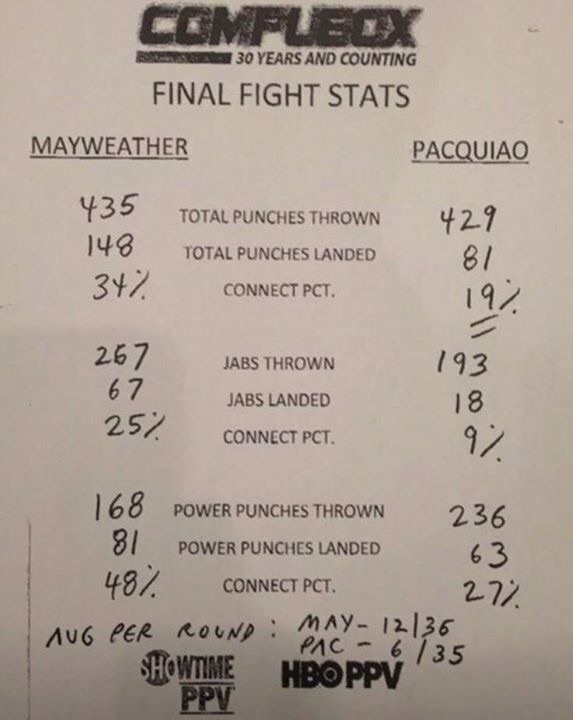 COMPUBOX
30 YEARS AND COUNTING
FINAL FIGHT STATS
MAYWEATHER PACQUIAO
435 TOTAL PUNCHES THROWN 429
148 TOTAL PUNCHES LANDED 81
34% CONNECT PCT. 19%
267 JABS THROWN 193
67 JABS LANDED 18
25% CONNECT PCT. 9%
168 POWER PUNCHES THROWN 236
81 POWER PUNCHES LANDED 63
48% CONNECT PCT. 27%
AVG PER ROUND: MAY - 12/36
PAC - 6/35
SHOWTIME HBO PPV
PPV